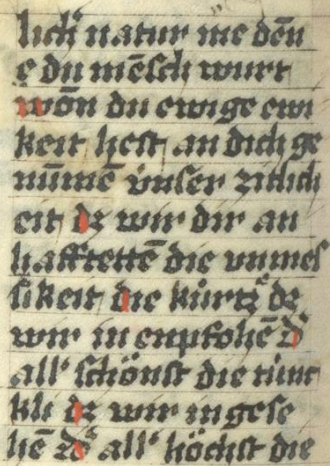 lich' natur me dēn
e du mēsch wurt
wōn du ewige ewi
keit hest an dich ge
nūmē ūnser zitlich
eit dz wir dir an
hafftettē die unmes
sikeit die kúrtz' dz
wir in enpfohē d'
all' schönst die tunc
kli dz wir in gese
hē d' all' höchst die